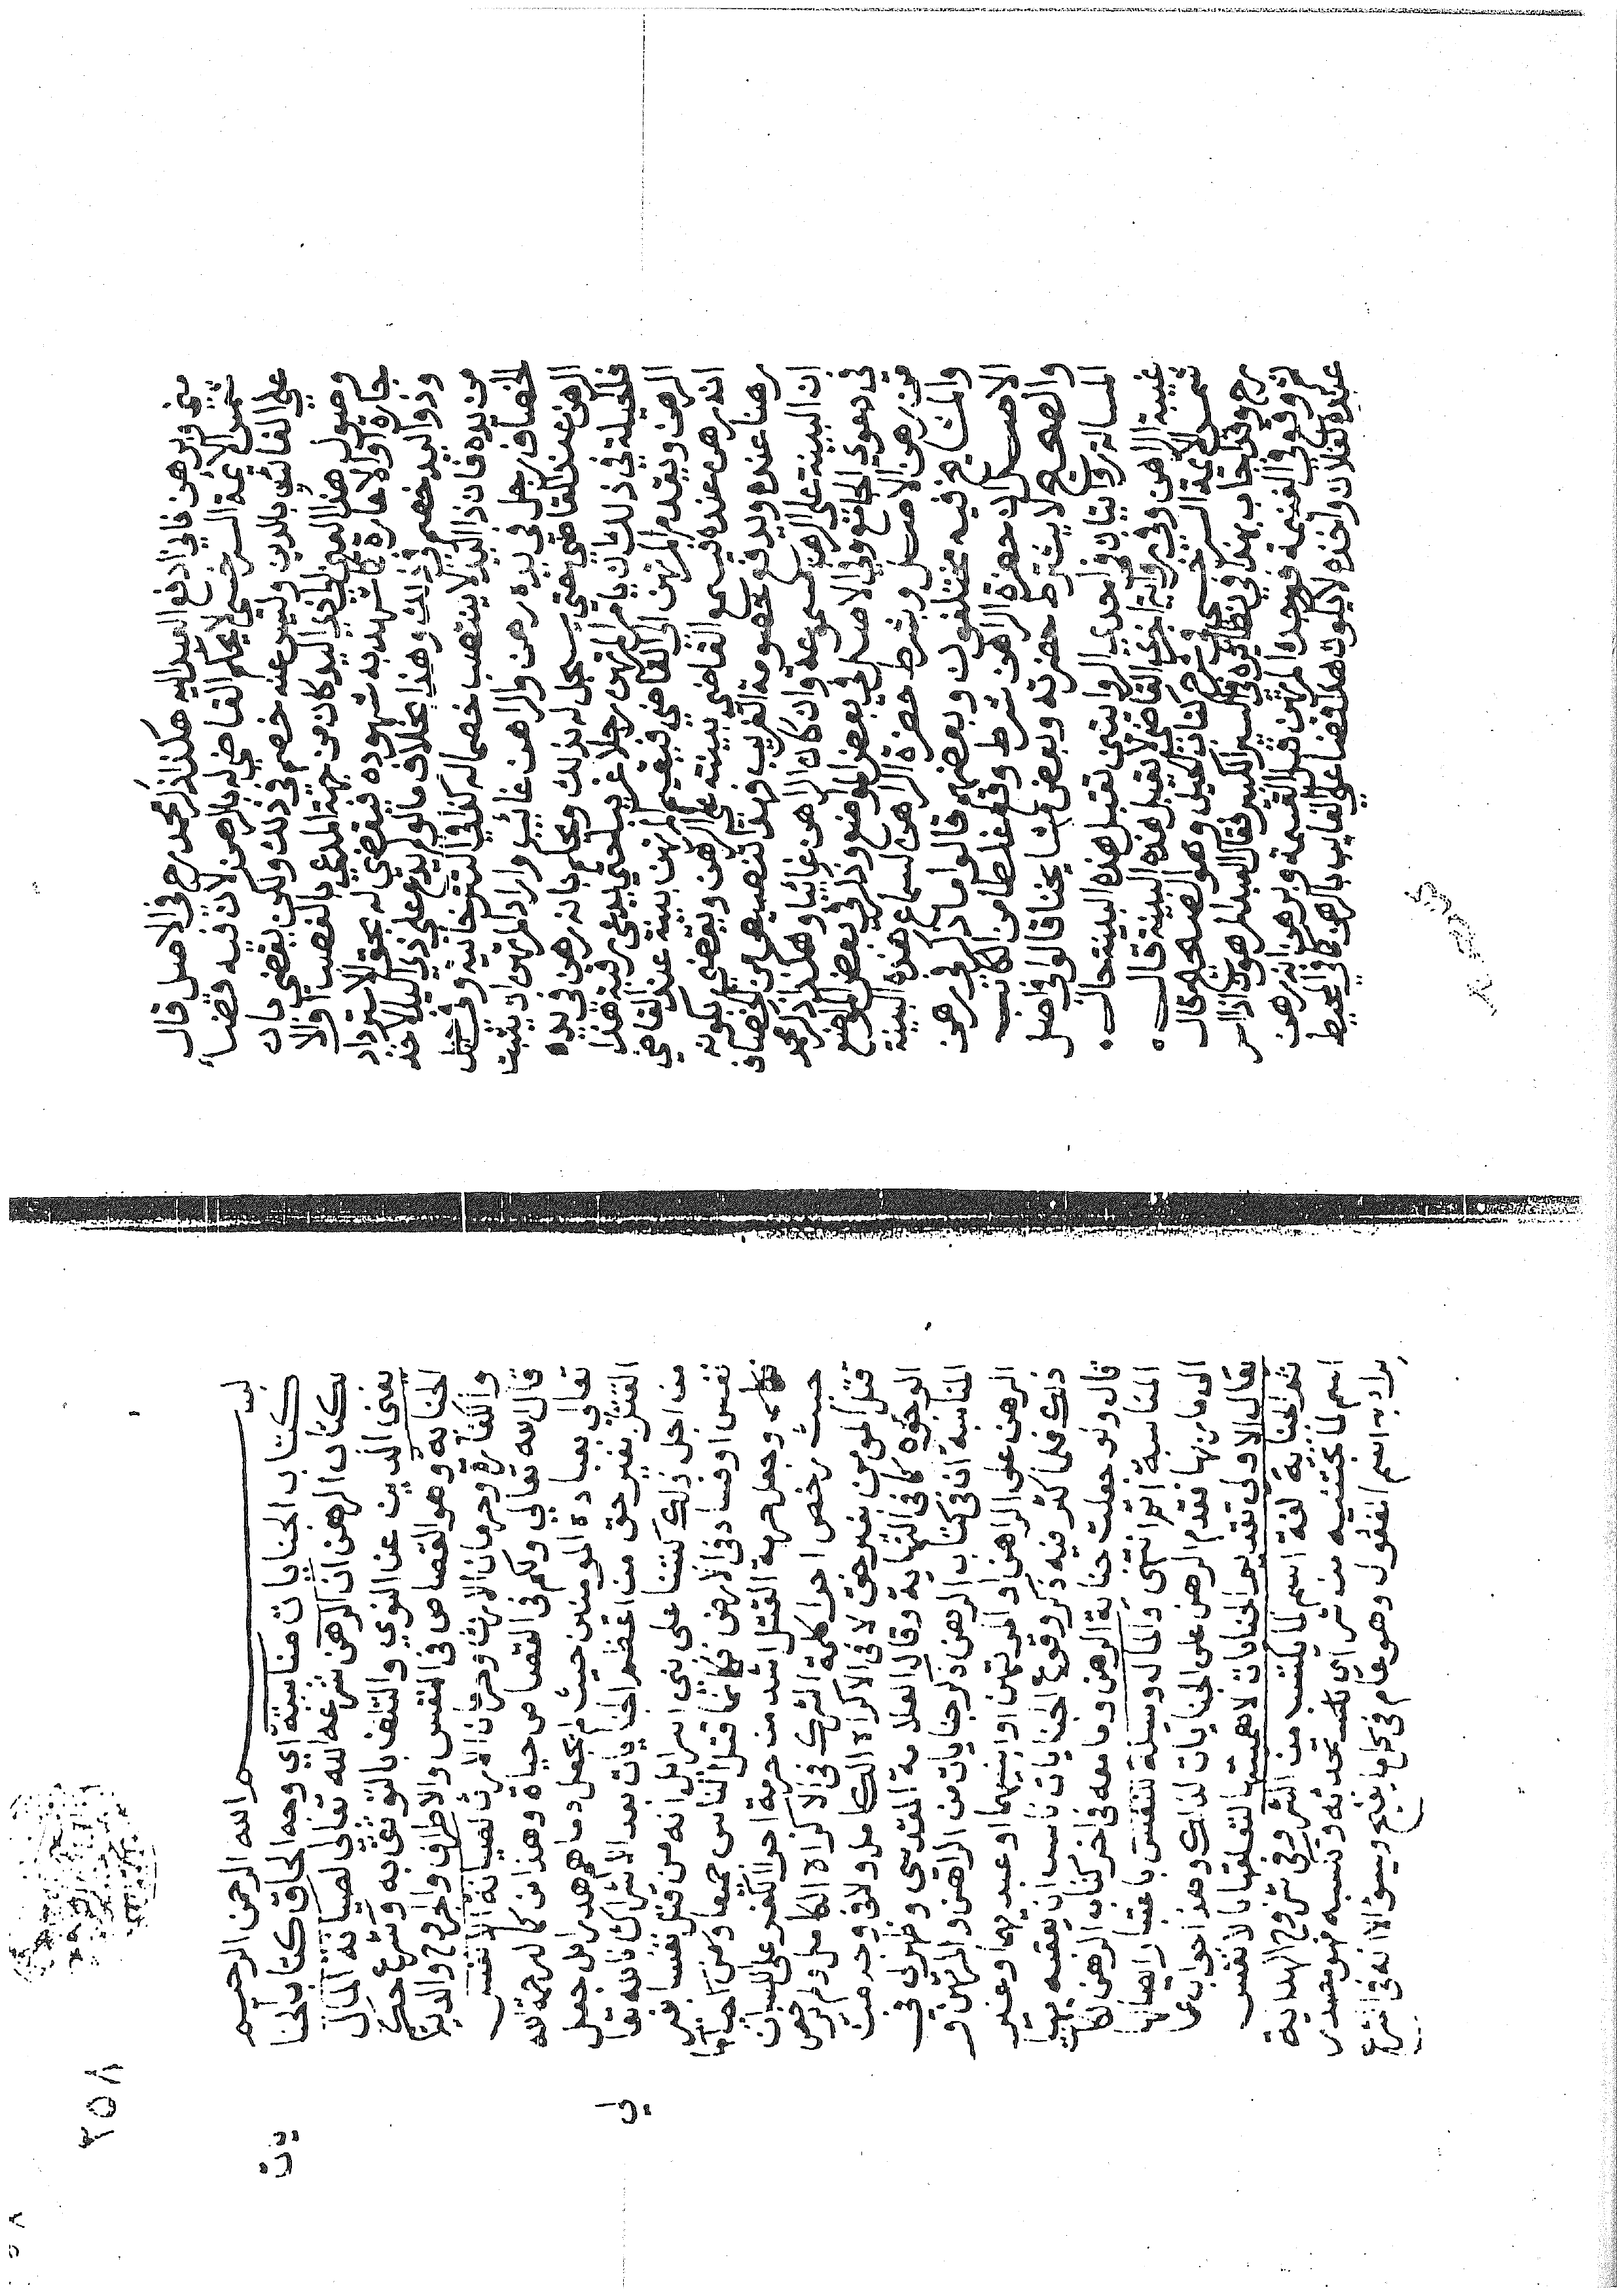 مني وبرهن فاني ادفع العبد اليه هكذا ذكر محمد رح في الاصل قال
شمس الائمة السرخسي لا يحكم القاضي له بالرهن لان فيه قضا
علي الغائب بالدين وليس عنه خصم في ذلك ولكن يقضي بان
وصول هذا العبد الي ذي اليد كان من جهة المدعي بالغصب اولا
جارة او الاعارة كما شهد به شهوده فيقضي له بحق الاسترداد
وذو اليد خصم في ذلك وهذا بخلاف ما لو لم يدع علي ذي اليد الاخذ
من يده فان ذا اليد لا ينتصب خصما له كذا في التترخانية وفي حيل
الخصاف رجل في يده رهن والراهن غائب واراد المرتهن ان يثبت
الرهن عند القاضي حتي يسجل له بذلك ويحكم بانه رهن في يده
فالحيلة في ذلك ان يامر المرتهن رجلا غريبا حتي يدعي رقبة هذا
الرهن ويقدم المرتهن الي القاضي فيقيم المرتهن بينة عند القاضي
انه رهن عنده فيسمع القاضي بينته علي الرهن ويقضي بكونه
رهنا عنده ويدفع خصومة الغريب فهذا تنصيص من الخصاف
ان البينة علي الرهن مسموعة وان كان الراهن غائبا وهكذا ذكر محمد
في دعوي الجامع وفي الاصل في بعض المواضع وذكر في بعض المواضع
من رهن الاصل وشرط حضرة الراهن لسماع هذه البينة
والمشايخ فيه مختلفون وبعضهم قالوا ما ذكر في رهن
الاصل ان حضرة الراهن شرط وقع غلطا من الكاتب
والصحيح لا يشترط حضرته وبعض مشايخنا قالوا في اصل
المسالة روايتان في احدي الروايتين تقبل هذه البينة حال
غيبة الراهن وفي رواية اخري القاضي لا تقبل هذه البينة قال
شمس الائمة السرخسي في شرح كتاب الحيل وهو الصحيح قال
رح وقد اجاب بهذا في نظائره في السير الكبير فقال العبد المرهون اذا اسر
ثم وقع في الغنيمة فوجده المرتهن قبل القسمة وبرهن انه رهن
عنده لفلان واخذه لا يكون هذا قضا علي الغايب بالرهن كما في المحيط
بسم الله الرحمن الرحيم
كتاب الجنايات مناسبة اي وجه الحاق كتاب الجنا
يات
بكتاب الرهن ان الرهن شرعه الله تعالي لصيانة المال
يعني الدين عن التوي والتلف بالتوثق به وشرع حكم
الجناية وهو القصاص في النفس والاطراف والجروح والدية
والكفارة وحرمان الارث لصيانة الانفس
قال الله تعالي ولكم في القصاص حياة وهذا من كمال رحمة الله
تعالي بعباده المومنين حيث لم يجعل دماهم هدرا بل جعل
القتل بغير حق من اعظم الجنايات بعد الاشراك بالله تعا
لي
من اجل ذلك كتبنا علي بني اسرايل انه من قتل نفسا بغير
نفس او فساد في الارض فكانما قتل الناس جميعا ومن احياها
وجعل حرمة القتل اشد من حرمة اجرا الكفر علي اللسان
حيث رخص اجرا كلمة الشرك في الاكراه الكامل ولم يرخص
قتل المومن بغير حق لا في الاكراه الكامل ولا في وجه من
الوجوه كما في النهاية وقال العلامة المقدسي وظهر لي في
المناسبة ان في كتاب الرهن ذكر جنايات من الراهن والمرتهن و
الرهن علي الراهن او المرتهن او ابنيهما او عبديهما وغير
ذلك فلما كثر فيه ذكر وقوع الجنايات ناسب ان يعقبه بها
قال ولو جعلت جناية الرهن وما معه في اخر كتاب الرهن لكا
المناسبة اقرا انتهي والمال وسيلة للنفس باعتبار ايصالها
الي ما ربها فقدم الرهن علي الجنايات لذلك وهذا جواب عما
يقال الاولي تقديم الجنايات لاهميتها لتعلقها بالانفس
ثم الجناية لغة اسم لما يكتسب من الشر وفي شروح الهداية
اسم لما يجتنيه من شر اي يستحدثه ويكسبه فهو مصدر
يراد به اسم المفعول وهو عام في كل ما يقبح ويسوء الا انه في الشرع
٢٥٨